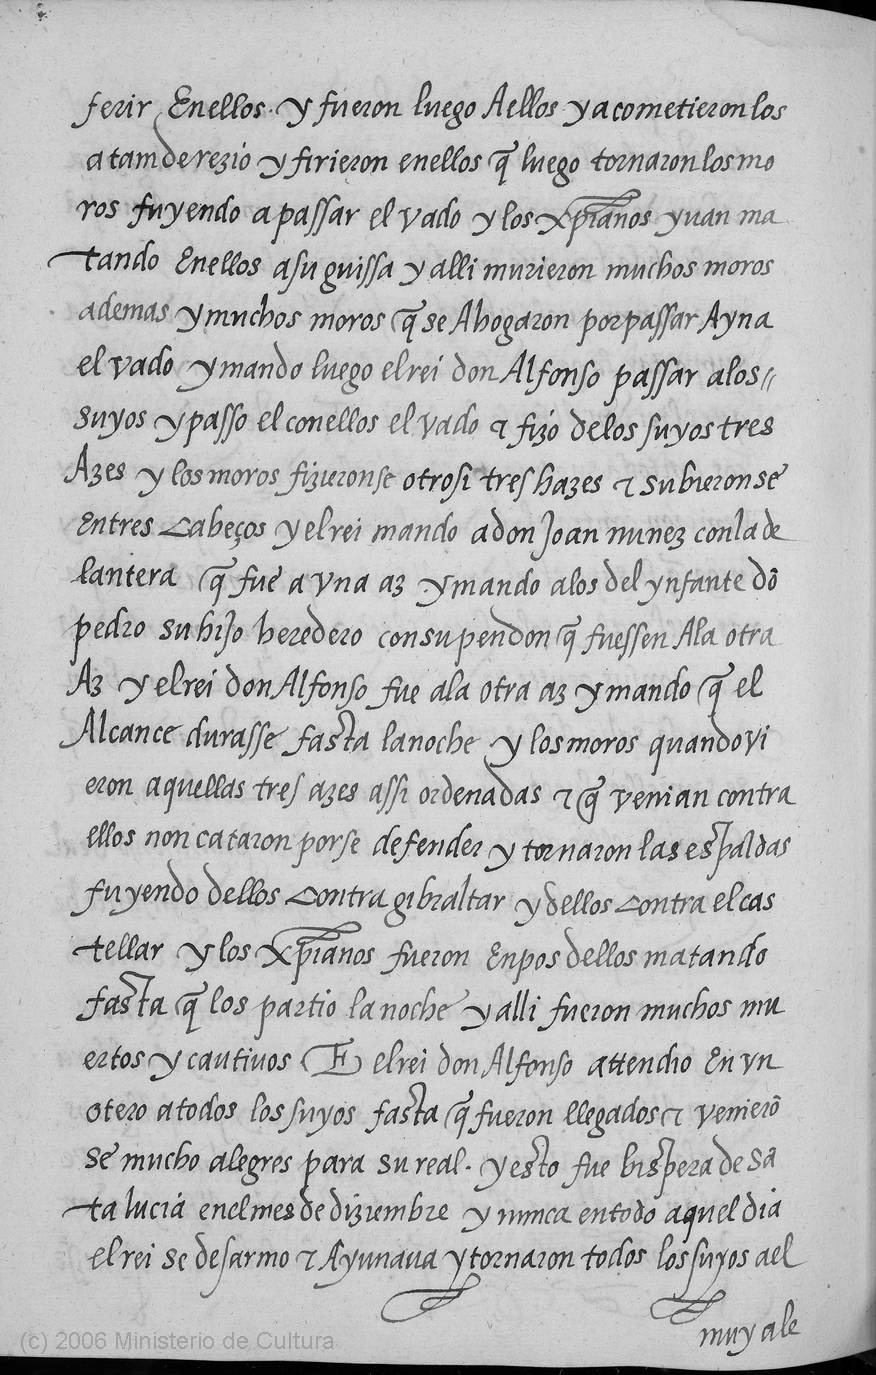 ferir Enellos. y fueron luego Aellos y acometieron los
a tamderezio y firieron enellos q̃ luego tornaron los mo
ros fuyendo a passar el vado y los xp̃ianos yuan ma
tando Enellos asu guissa y alli murieron muchos moros
ademas y muchos moros q̃ se Ahogaron por passar Ayna
el vado y mando luego el rei don Alfonso passar alos//
suyos y passo el conellos el vado & fizo delos suyos tres
Azes y los moros fizieronse otrosi tres hazes & subieronse
Entres Cabeços y el rei mando a don Joan nunez conla de
lantera q̃ fue a vna az y mando alos del ynfante dõ
pedro su hijo heredero consu pendon q̃ fuessen Ala otra
Az y el rei don Alfonso fue ala otra az y mando q̃ el
Alcance durasse fasta lanoche y los moros quando vi
eron aquellas tres azes assi ordenadas & q̃ venian contra
ellos non cataron porse defender y tornaron las espaldas
fuyendo dellos Contra gibraltar y dellos Contra el cas
tellar y los xp̃ianos fueron Enpos dellos matando
fasta q̃ los partio la noche y alli fueron muchos mu
ertos y cautiuos E el rei don Alfonso attendio En vn
otero a todos los suyos fasta q̃ fueron llegados & venierõ
se mucho alegres para su real. y esto fue bispera de sã
ta lucia enel mes de diziembre y nunca entodo aquel dia
el rei se desarmo & Ayunaua y tornaron todos los suyos ael
muy ale
(c) 2006 Ministerio de Cultura